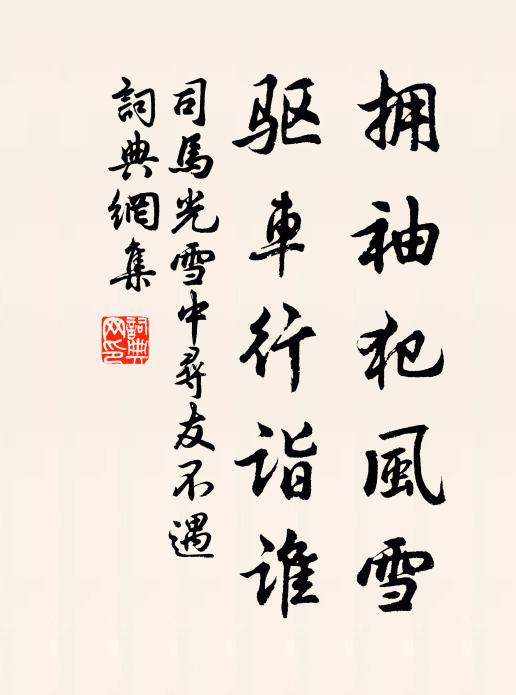 拥袖犯風雪
驱車行诣谁
司馬光雪中尋友不遇
詞典網集
詞典网印